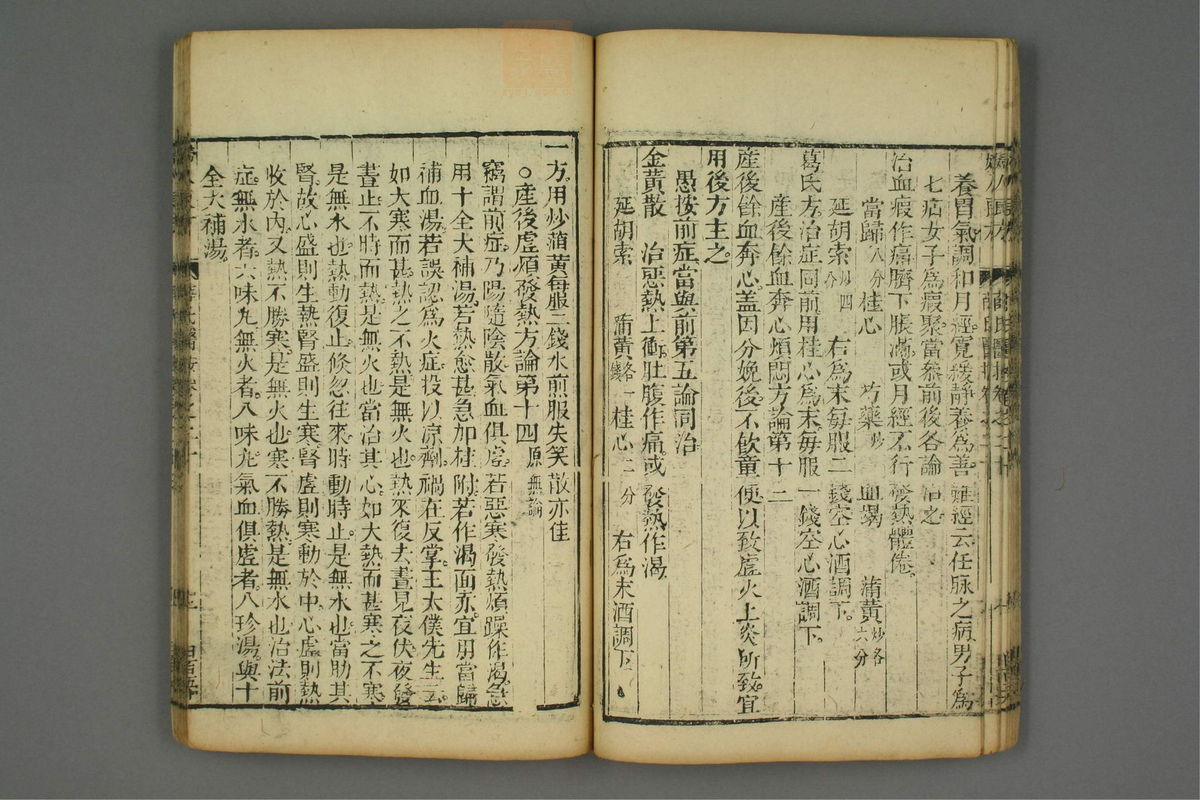 養胃氣調和月經寬緩靜養爲善難經云任脉之病男子爲
七疝女子爲瘕聚當參前後各論治之
治血瘕作痛臍下脹滿或月經不行發熱體倦
當歸八分 桂心 芍藥炒 血竭 蒲黃炒各六分
延胡索炒四分 右爲末每服二錢空心酒調下
葛氏方治症同前用桂心爲末每服一錢空心酒調下
產後餘血奔心煩悶方論第十二
產後餘血奔心蓋因分娩後不飲童便以致虛火上炎所致宜
用後方主之
愚按前症當與前第五論同治
金黃散 治惡熱上衝肚腹作痛或發熱作渴
延胡索 蒲黃各一錢 桂心二分 右爲末酒調下
一方用炒蒲黃每服二錢水煎服失笑散亦佳
○產後虛煩發熱方論第十四原無論
竊謂前症乃陽隨陰散氣血俱虛若惡寒發熱煩躁作渴急
用十全大補湯若熱愈甚急加桂附若作渴面赤宜用當歸
補血湯若誤認爲火症投以凉劑禍在反掌王太僕先生云
如大寒而甚熱之不熱是無火也熱來復去晝見夜伏夜發
晝止不時而熱是無火也當治其心如大熱而甚寒之不寒
是無水也熱動復止倐忽往來時動時止是無水也當助其
腎故心盛則生熱腎盛則生寒腎虛則寒動於中心虛則熱
收於內又熱不勝寒是無火也寒不勝熱是無水也治法前
症無水者六味丸無火者八味丸氣血俱虛者八珍湯與十
全大補湯